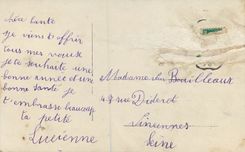 chère tante
je viens t'offrir
tous mes voeux
je te souhaite une
bonne année et une
bonne santé je
t'embrasse beaucoup
ta petite
Lucienne
Madame
48 rue Diderot
Vincennes
Seine